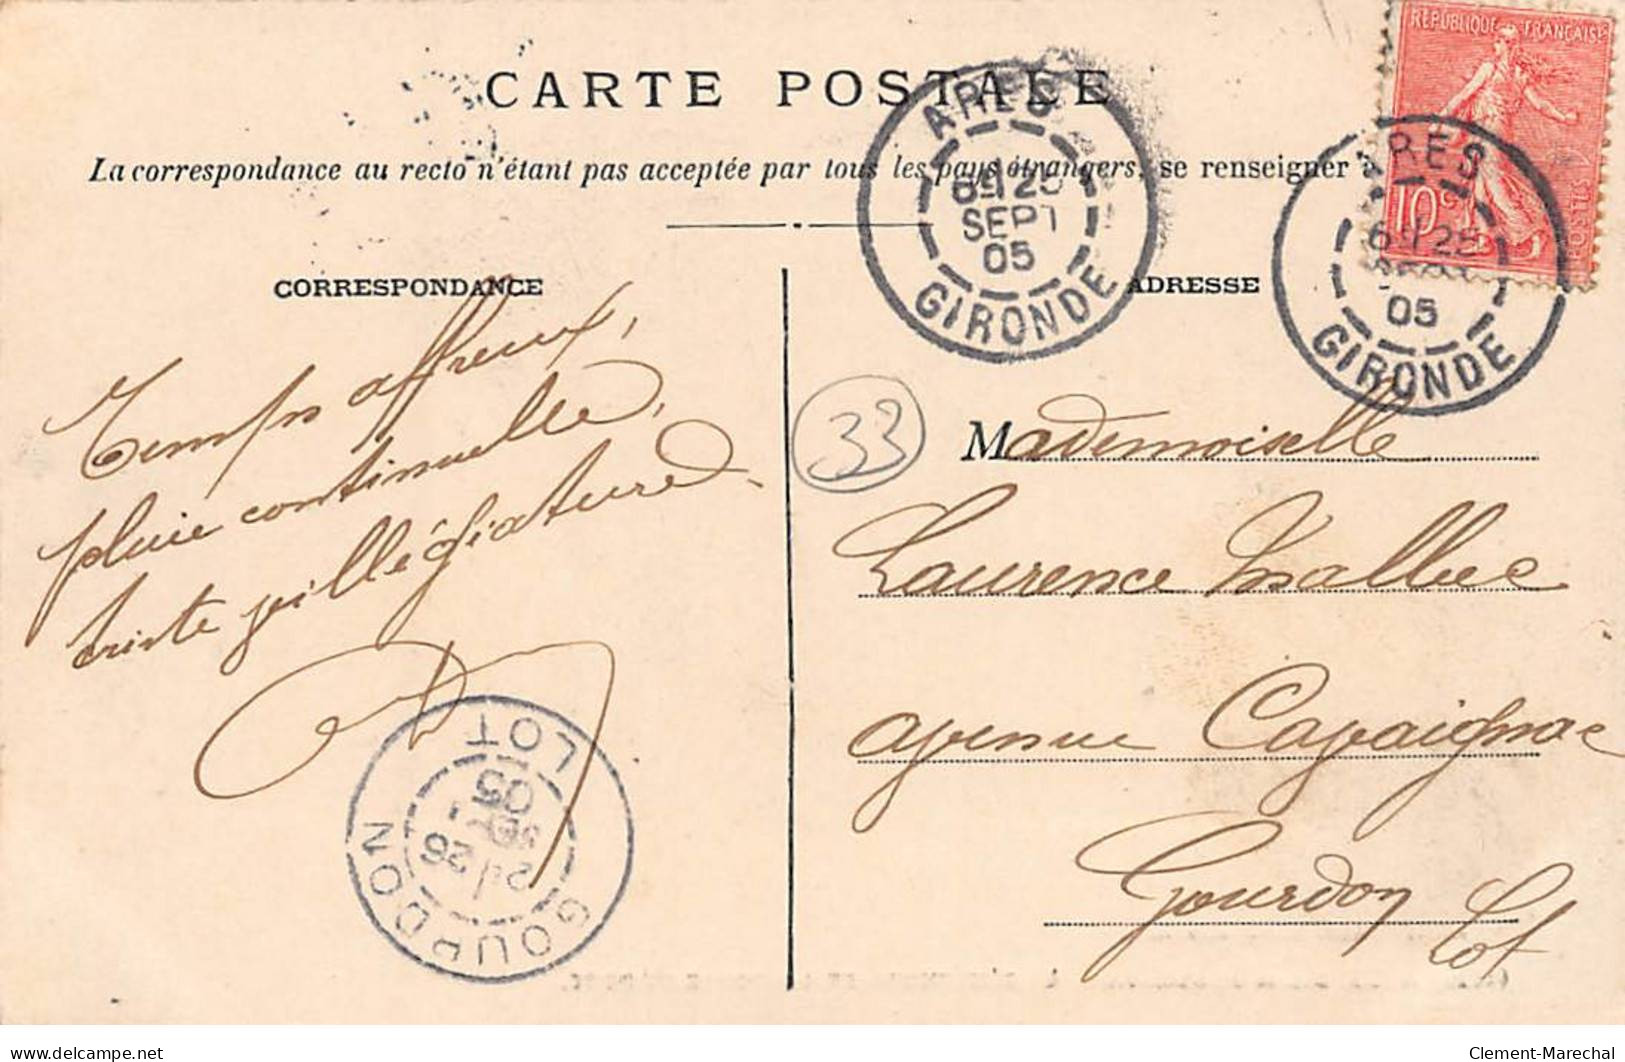 RÉPUBLIQUE FRANÇAISE
10 c
POSTES
CARTE POSTALE
La correspondance au recto n'étant pas acceptée par tous les pays étrangers, se renseigner à
ARES
6 25
SEPT
05
GIRONDE
ARES
6 25
05
GIRONDE
CORRESPONDANCE
Temps affreux,
pluie continuelle,
triste villégiature
33
ADRESSE
Mademoiselle
Laurence Malbec
avenue Cavaignac
Gourdon
Lot
GOURDON
26
SEPT
05
LOT
www.delcampe.net
Clement-Marechal